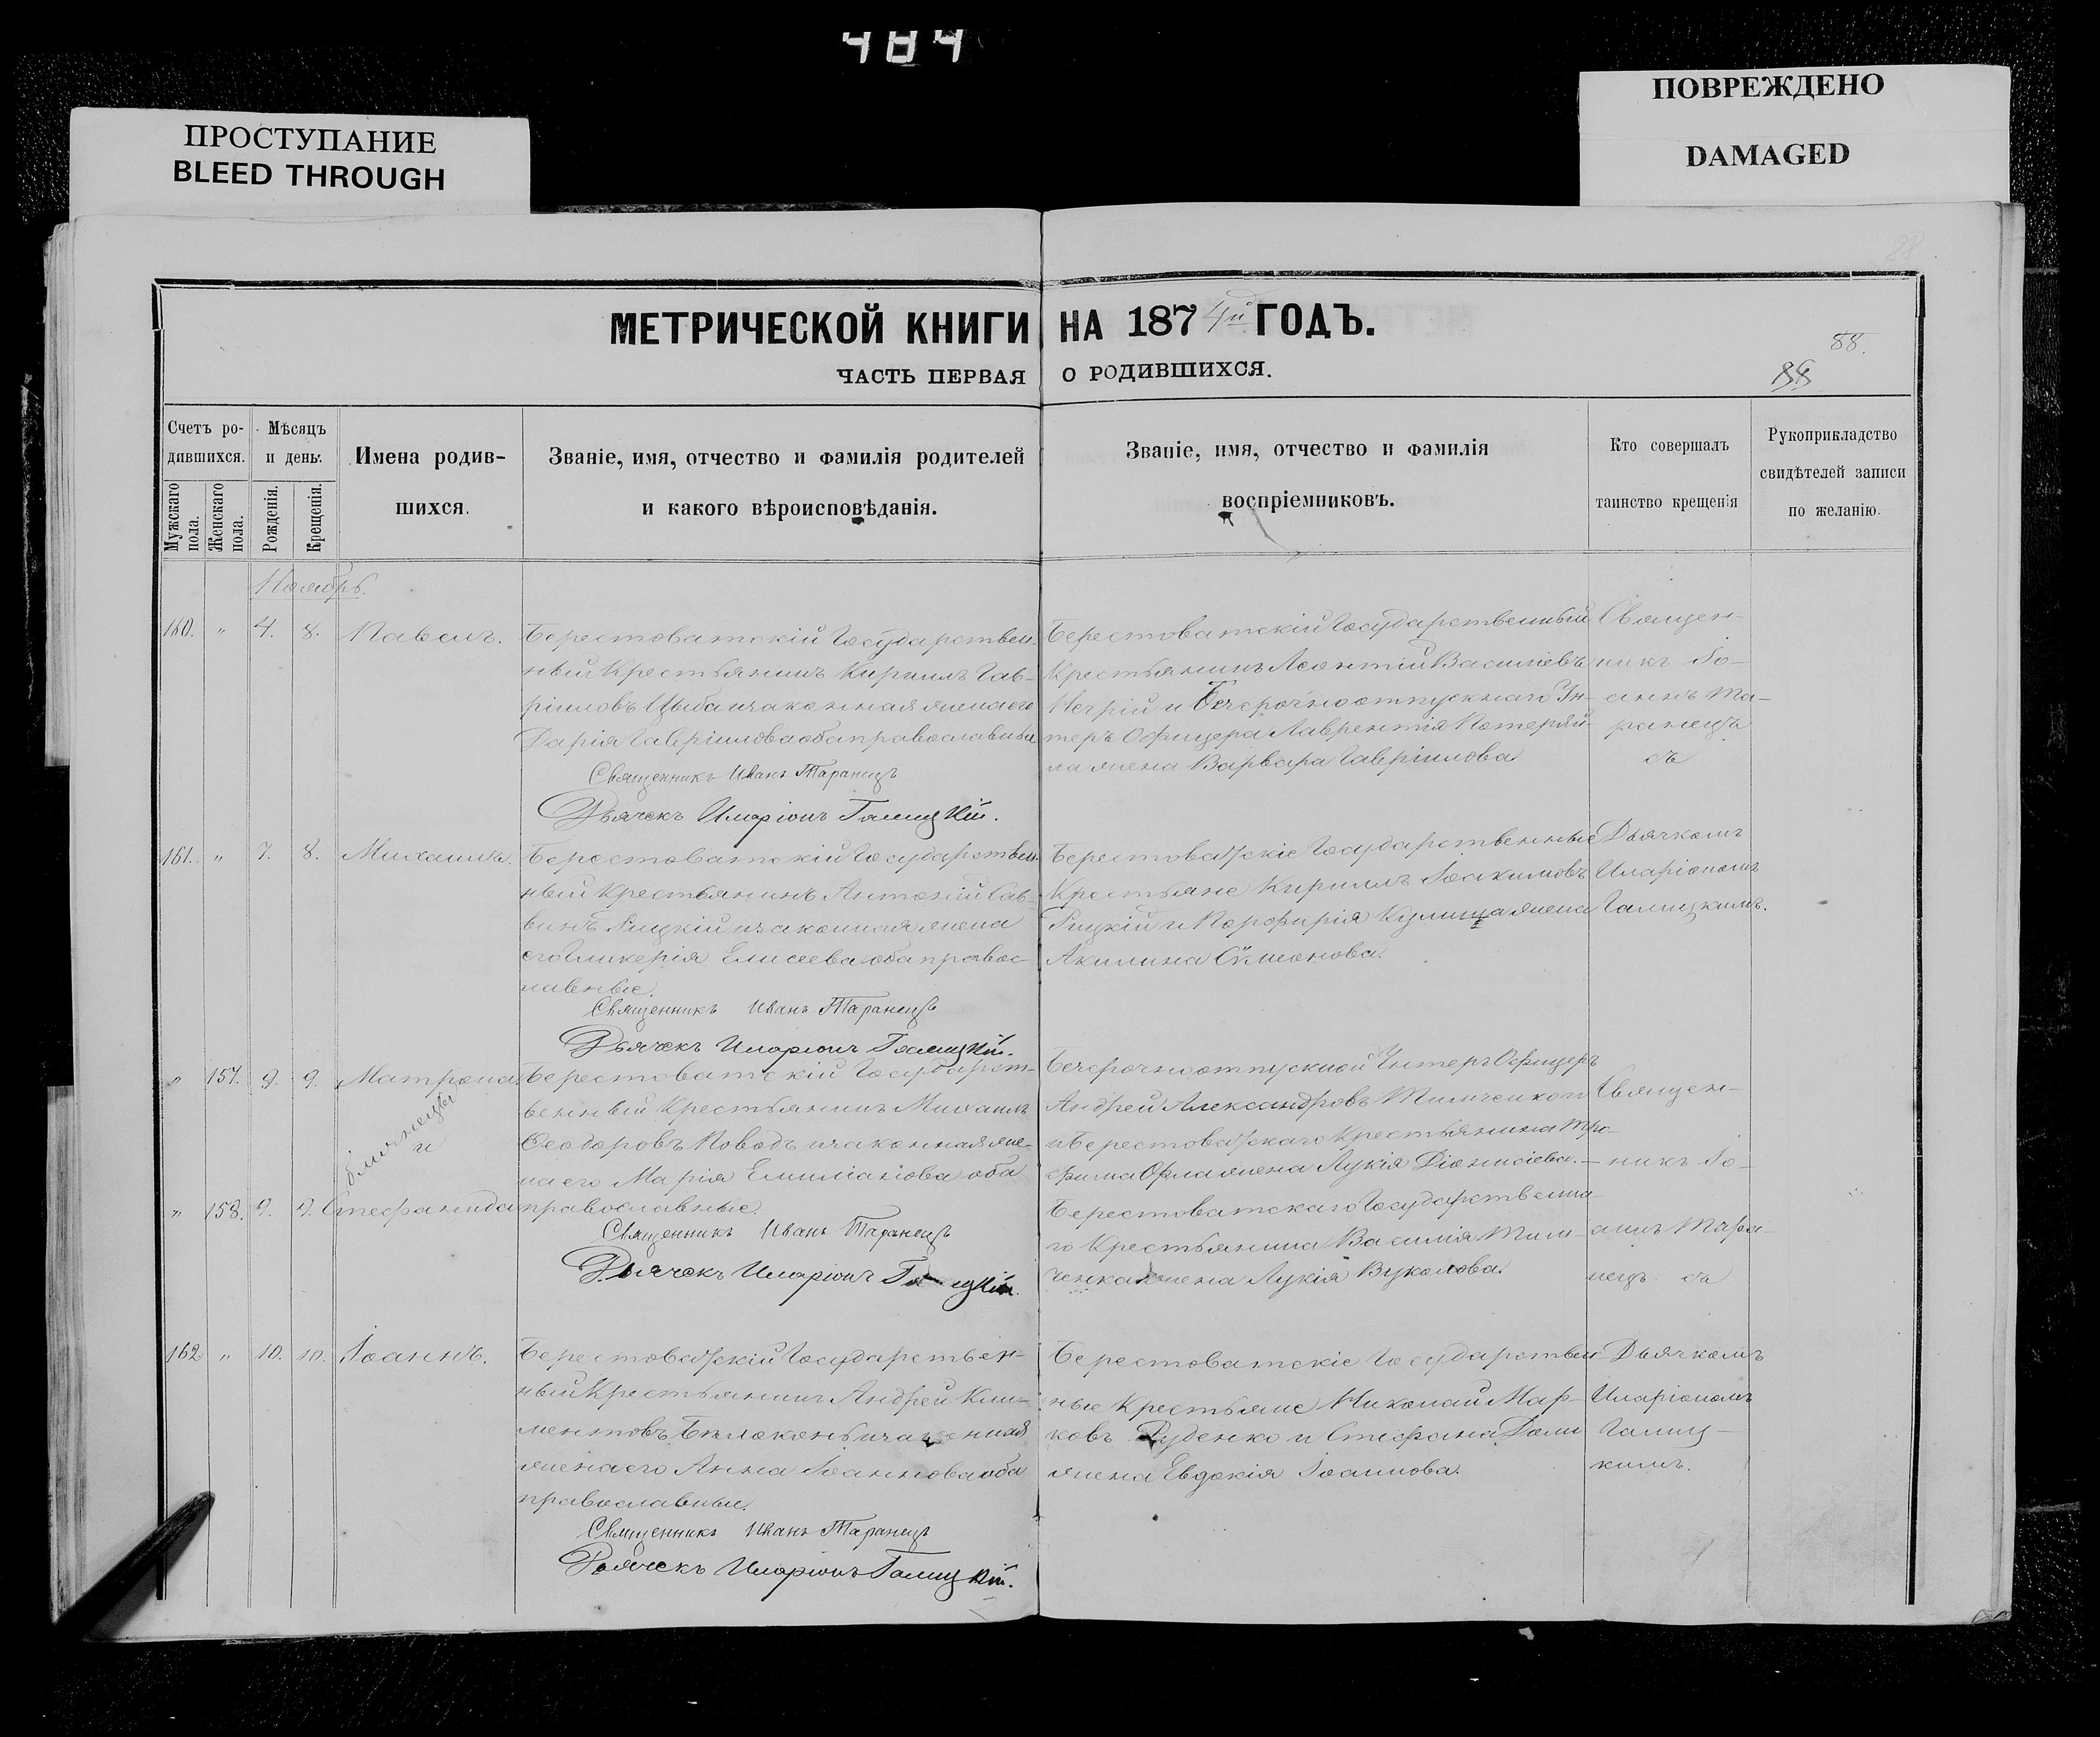 484
ПРОСТУПАНИЕ
BLEED THROUGH
ПОВРЕЖДЕНО
DAMAGED
МЕТРИЧЕСКОЙ КНИГИ НА 1874й ГОДЪ.
88.
ЧАСТЬ ПЕРВАЯ О РОДИВШИХСЯ.
Счетъ ро-
дившихся.
Мужскаго пола.
Женскаго пола.
Мѣсяцъ
и день.
Рожденія.
Крещенія.
Имена родив-
шихся.
Званіе, имя, отчество и фамилія родителей
и какого вѣроисповѣданія.
Званіе, имя, отчество и фамилія
воспріемниковъ.
Кто совершалъ
таинство крещенія
Рукоприкладство
свидѣтелей записи
по желанію.
Ноябрь.
160. " 4. 8. Павелъ.
Берестоватскій Государствен-
ный Крестьянинъ Кириллъ Гав-
ріиловъ Цыба и законная жена его
Дарія Гавріилова оба православные
Священникъ Иванъ Таранецъ
Дьячекъ Иларіонъ Галицкій.
Берестоватскій Государственный
Крестьянинъ Леонтій Василіевъ
и Безсрочноотпускнаго Ун-
теръ Офицера Лаврентія Потеряй-
ла жена Варвара Гавріилова.
Священ-
никъ Іо-
аннъ Та-
ранецъ
съ
161. " 7. 8. Михаилъ.
Берестоватскій Государствен-
ный Крестьянинъ Антоній Сав-
винъ Гицкій и законная жена
его Гликерія Елисеева оба правос-
лавные.
Священникъ Иванъ Таранецъ
Дьячекъ Иларіонъ Галицкій.
Берестоватскіе Государственные
Крестьяне Кириллъ Іоакимовъ
Гицкій и Порфирія Кулиша жена
Акилина Сѵмеонова.
Дьячкомъ
Иларіономъ
Галицкимъ.
" 157. 9. 9. Матрона
близнецы
и
" 158. 9. 9. Стефанида
Берестоватскій Государст-
венный Крестьянинъ Михаилъ
Феодоровъ Поводъ и законная же-
на его Марія Емиліанова оба
православные.
Священникъ Иванъ Таранецъ
Дьячекъ Иларіонъ Галицкій.
Безсрочноотпускной Унтеръ Офицеръ
Андрей Александровъ Тимченко
и Берестоватскаго Крестьянина Тро-
фима жена Лукія Діонисіева.—
Берестоватскаго Государственна-
го Крестьянина Василія Тим-
ченка жена Лукія Вуколова.
Священ-
никъ Іо-
аннъ Тара-
нецъ съ
162 " 10. 10. Іоаннъ.
Берестоватскій Государствен-
ный Крестьянинъ Андрей Кли-
ментовъ Бѣлоконь и законная
жена его Анна Іоаннова оба
православные.
Священникъ Иванъ Таранецъ
Дьячекъ Иларіонъ Галицкій.
Берестоватскіе Государствен-
ные Крестьяне Николай Мар-
ковъ Руденко и Стефана
жена Евдокія Іоаннова.
Дьячкомъ
Иларіономъ
Галиц-
кимъ.